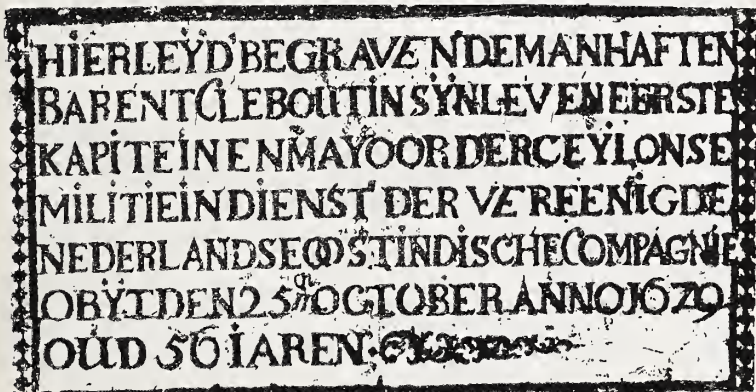 HIER LEŸD BEGRAVEN DE MANHAFTEN
BARENT CLEBOUT IN SŸN LEVEN EERSTE
KAPITEIN EN MAYOOR DER CEŸLONSE
MILITIE IN DIENST DER VEREENIGDE
NEDERLANDSE OOSTINDISCHE COMPAGNIE
OBŸT DEN 25en OCTOBER ANNO 1679
OUD 56 IAREN.